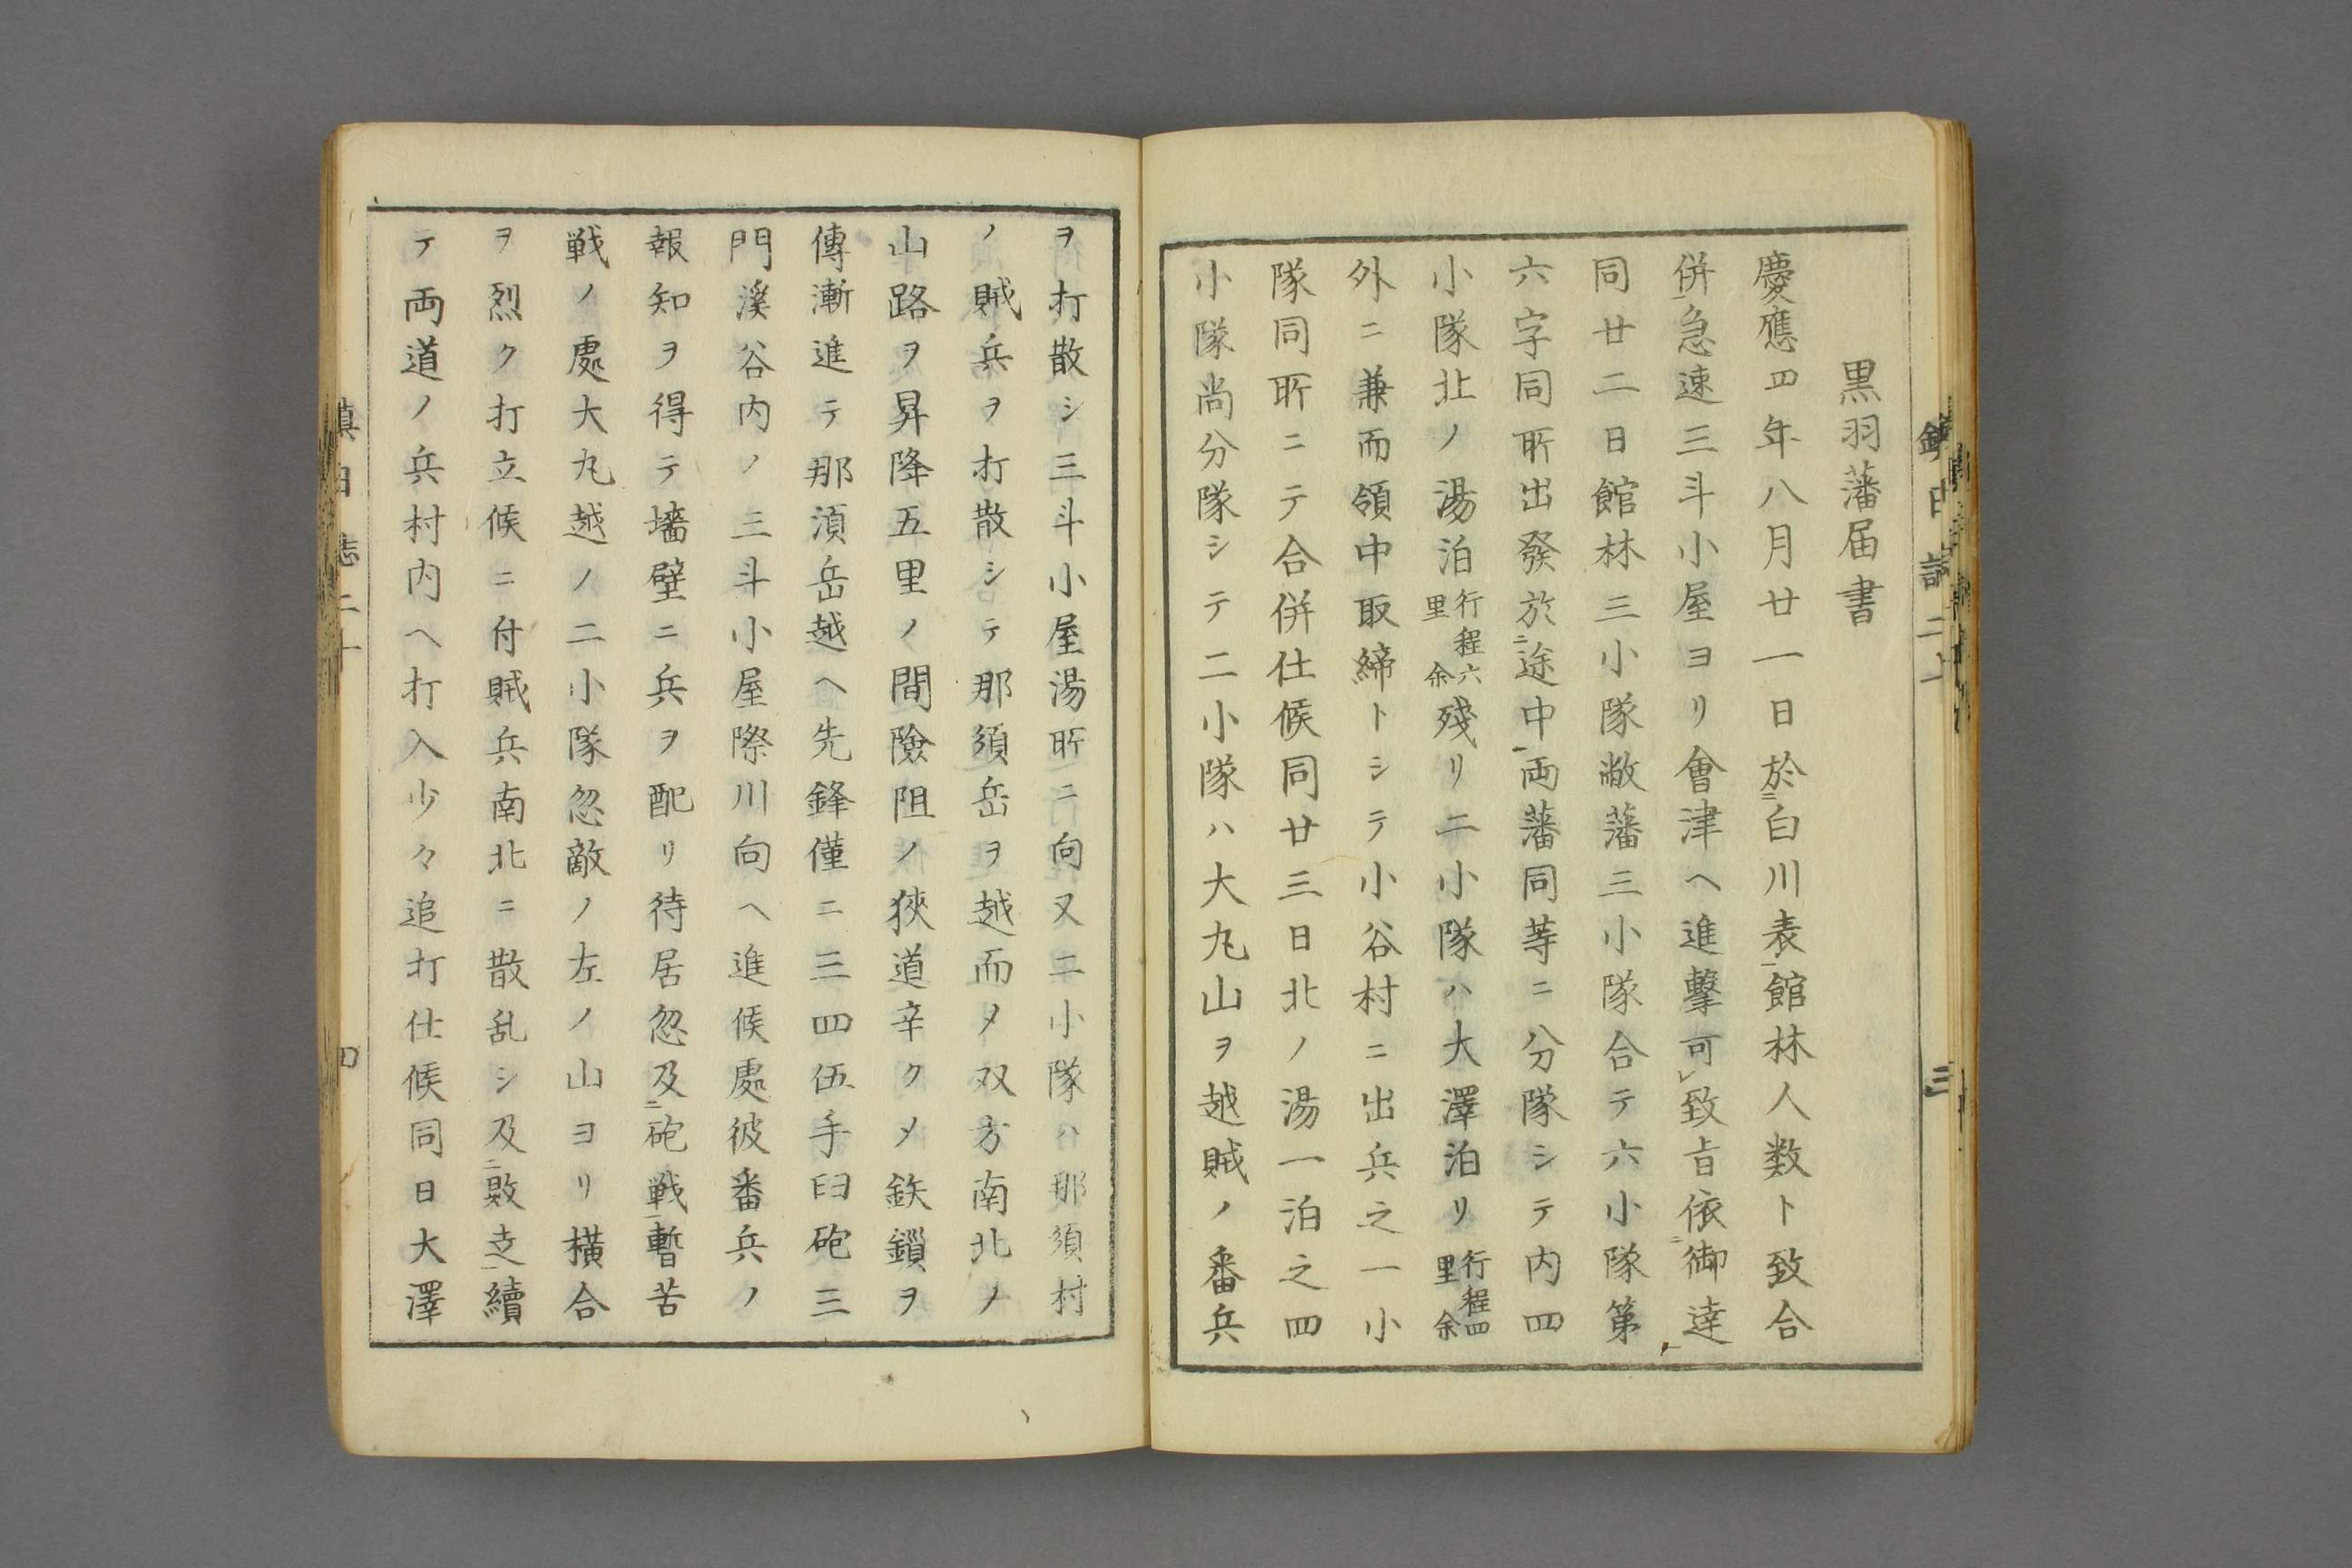 黒羽藩届書
慶應四年八月廿一日於ニ白川表一館林人数ト致合
併一急速三斗小屋ヨリ會津ヘ進擊可レ致旨依ニ御達
同廿二日館林三小隊敝藩三小隊合テ六小隊第
六字同所出發於ニ途中一両藩同等ニ分隊シテ内四
小隊北ノ湯泊行程六里余残リ二小隊ハ大澤泊リ行程四里余
外ニ兼而領中取締トシテ小谷村ニ出兵之一小
隊同所ニテ合併仕候同廿三日北ノ湯一泊之四
小隊尚分隊シテ二小隊ハ大丸山ヲ越賊ノ番兵
ヲ打散シ三斗小屋湯所ニ向又二小隊ハ那須村
ノ賊兵ヲ打散シテ那須岳ヲ越而メ双方南北ノ
山路ヲ昇降五里ノ間險阻ノ狹道辛クメ鉄鎖ヲ
傳漸進テ那須岳越ヘ先鋒僅ニ三四伍手臼砲三
門溪谷内ノ三斗小屋際川向ヘ進候處彼番兵ノ
報知ヲ得テ墻壁ニ兵ヲ配リ待居忽及ニ砲戦一暫苦
戦ノ處大丸越ノ二小隊忽敵ノ左ノ山ヨリ横合
ヲ烈ク打立候ニ付賊兵南北ニ散乱シ及ニ敗走一續
テ両道ノ兵村内ヘ打入少々追打仕候同日大澤